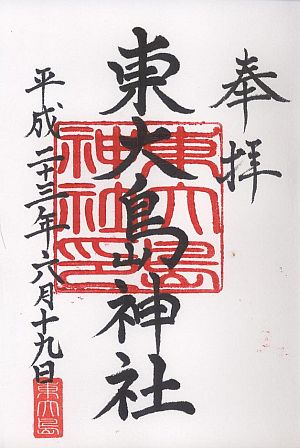 奉拝
東大島神社
東大島神社印
平成二十三年六月十九日
東大島